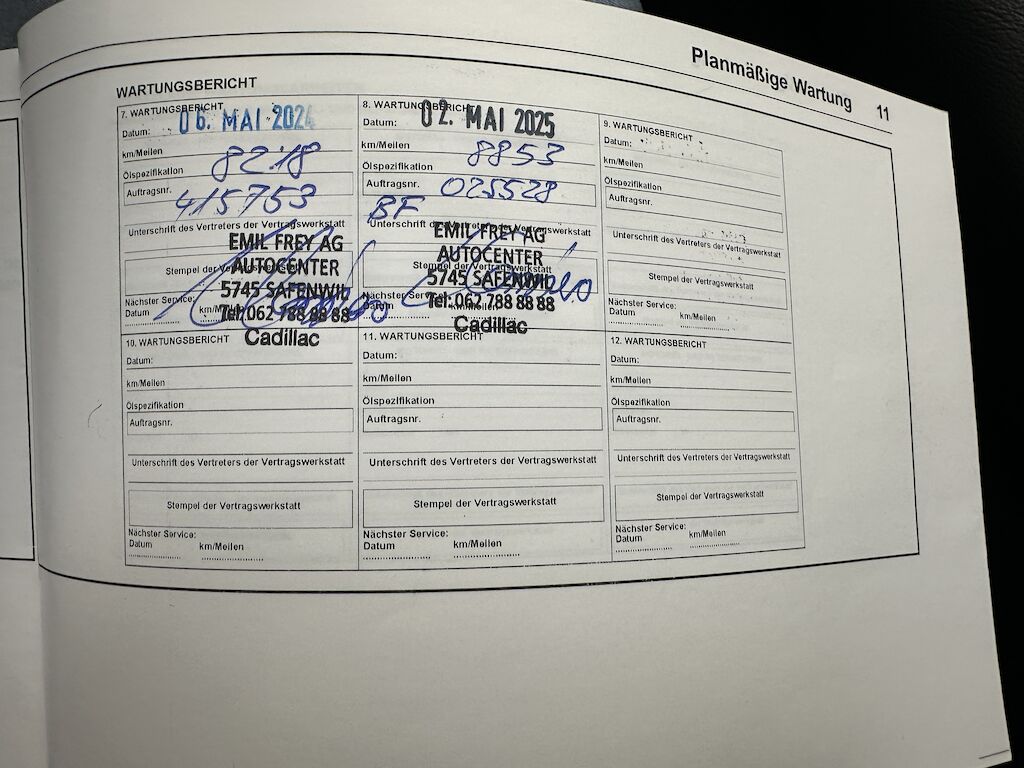 Planmäßige Wartung 11
WARTUNGSBERICHT
7. WARTUNGSBERICHT
Datum: 06. MAI 2024
km/Meilen 8218
Ölspezifikation
Auftragsnr. 415753
Unterschrift des Vertreters der Vertragswerkstatt
EMIL FREY AG
AUTOCENTER
Stempel der Vertragswerkstatt
5745 SAFENWIL
Nächster Service:
Datum km/Meilen
Tel: 062 788 88 88
Cadillac
8. WARTUNGSBERICHT
Datum: 02. MAI 2025
km/Meilen 8853
Ölspezifikation
Auftragsnr. 025528
BF
Unterschrift des Vertreters der Vertragswerkstatt
EMIL FREY AG
AUTOCENTER
Stempel der Vertragswerkstatt
5745 SAFENWIL
Nächster Service:
Datum km/Meilen
Tel: 062 788 88 88
Cadillac
9. WARTUNGSBERICHT
Datum:
km/Meilen
Ölspezifikation
Auftragsnr.
Unterschrift des Vertreters der Vertragswerkstatt
Stempel der Vertragswerkstatt
Nächster Service:
Datum km/Meilen
10. WARTUNGSBERICHT
Datum:
km/Meilen
Ölspezifikation
Auftragsnr.
Unterschrift des Vertreters der Vertragswerkstatt
Stempel der Vertragswerkstatt
Nächster Service:
Datum km/Meilen
11. WARTUNGSBERICHT
Datum:
km/Meilen
Ölspezifikation
Auftragsnr.
Unterschrift des Vertreters der Vertragswerkstatt
Stempel der Vertragswerkstatt
Nächster Service:
Datum km/Meilen
12. WARTUNGSBERICHT
Datum:
km/Meilen
Ölspezifikation
Auftragsnr.
Unterschrift des Vertreters der Vertragswerkstatt
Stempel der Vertragswerkstatt
Nächster Service:
Datum km/Meilen